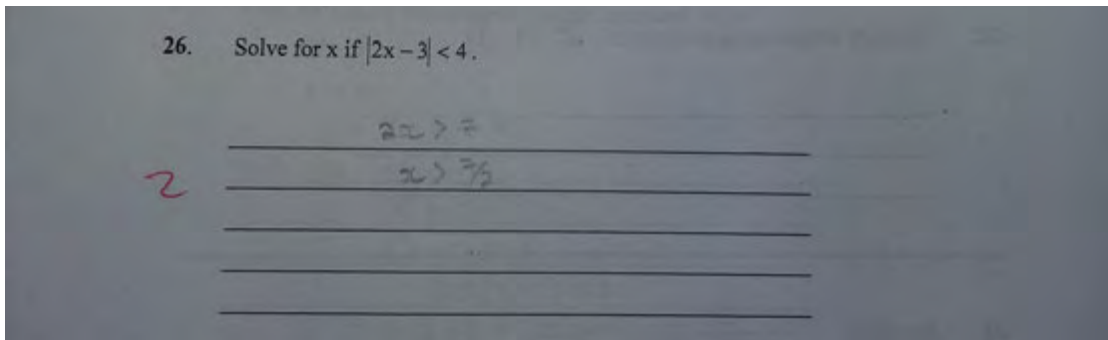 26. Solve for x if |2x – 3| < 4 .
2x > 7
2
x > 7/2